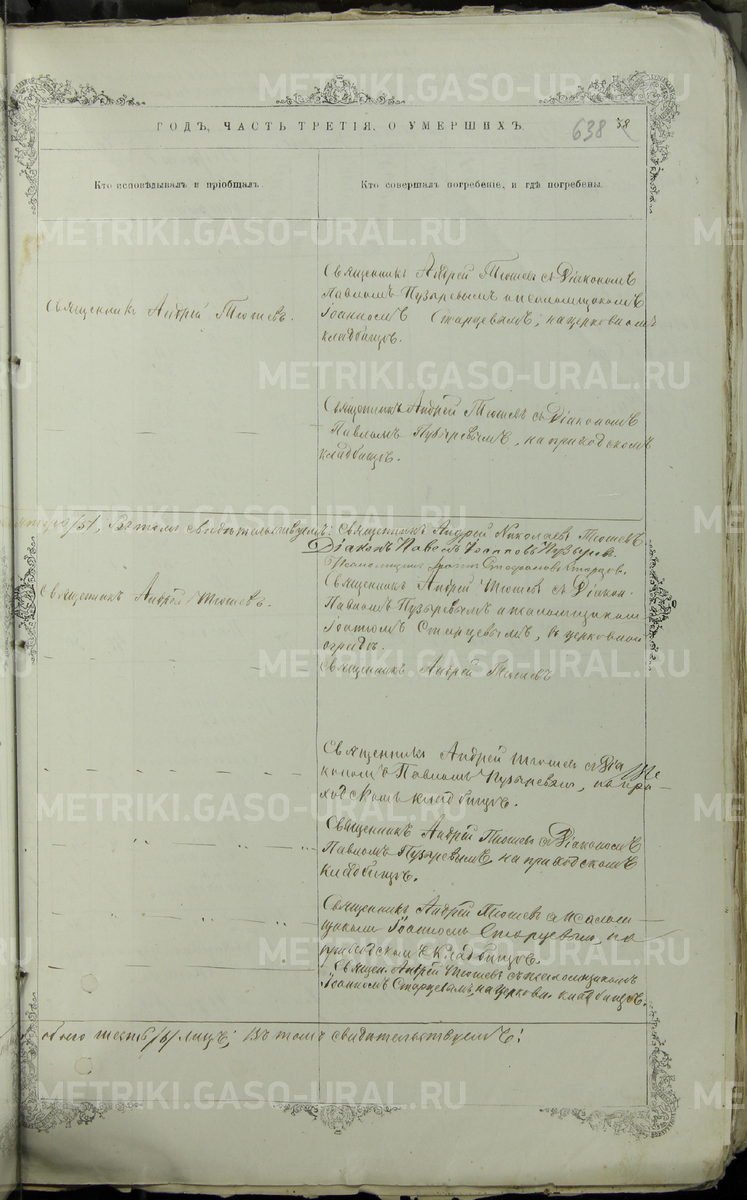 METRIKI.GASO-URAL.RU
ГОДЪ, ЧАСТЬ ТРЕТІЯ, О УМЕРШИХЪ.
638
Кто исповѣдывалъ и пріобщалъ.
Кто совершалъ погребеніе, и гдѣ погребены.
Священникъ Андрей Тюшевъ.
Священникъ Андрей Тюшевъ съ Діакономъ
Павломъ Пузыревымъ и псаломщикомъ
Іоанномъ Старцевымъ, на церковномъ
кладбищѣ.
Священникъ Андрей Тюшевъ съ Діакономъ
Павломъ Пузыревымъ, на приходскомъ
кладбищѣ.
Въ томъ свидѣтельствуемъ: Священникъ Андрей Николаевъ Тюшевъ
Діаконъ Павелъ Іоанновъ Пузыревъ.
Псаломщикъ Іоаннъ Стефановъ Старцевъ.
Священникъ Андрей Тюшевъ.
Священникъ Андрей Тюшевъ съ Діакон.
Павломъ Пузыревымъ и псаломщикомъ
Іоанномъ Старцевымъ, въ церковной
оградѣ.
Священникъ Андрей Тюшевъ
Священникъ Андрей Тюшевъ съ Діа
кономъ Павломъ Пузыревымъ, на при-
ходскомъ кладбищѣ.
Священникъ Андрей Тюшевъ съ Діакономъ
Павломъ Пузыревымъ, на приходскомъ
кладбищѣ.
Священникъ Андрей Тюшевъ съ псалом-
щикомъ Іоанномъ Старцевымъ, на
приходскомъ кладбищѣ.
Священ. Андрей Тюшевъ съ псаломщикомъ
Іоанномъ Старцевымъ, на церковн. кладбищѣ.
всего шесть /6/ лицъ; Въ томъ свидѣтельствуемъ: